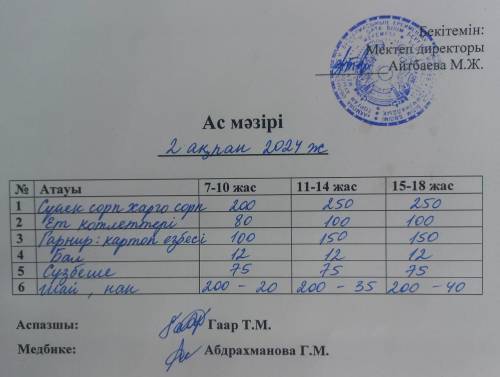 Бекітемін:
Мектеп директоры
Айтбаева М.Ж.
Ас мәзірі
2 ақпан 2024 ж
№ Атауы 7-10 жас 11-14 жас 15-18 жас
1 Сүйек сорп харчо сорп 200 250 250
2 Ет котлеттері 80 100 100
3 Гарнир: картоп езбесі 100 150 150
4 Бал 12 12 12
5 Сүзбеше 75 75 75
6 Шай, нан 200 - 20 200 - 35 200 - 40
Аспазшы: Гаар Т.М.
Медбике: Абдрахманова Г.М.